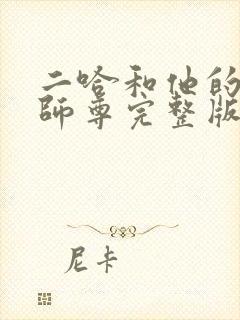 二哈和他的
師尊完整版
尼卡